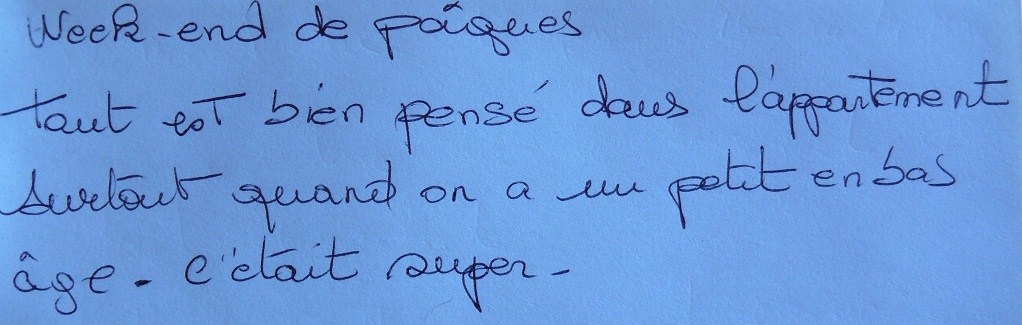 Week-end de pâques
tout est bien pensé dans l'appartement
surtout quand on a un petit en bas
âge. c'était super-